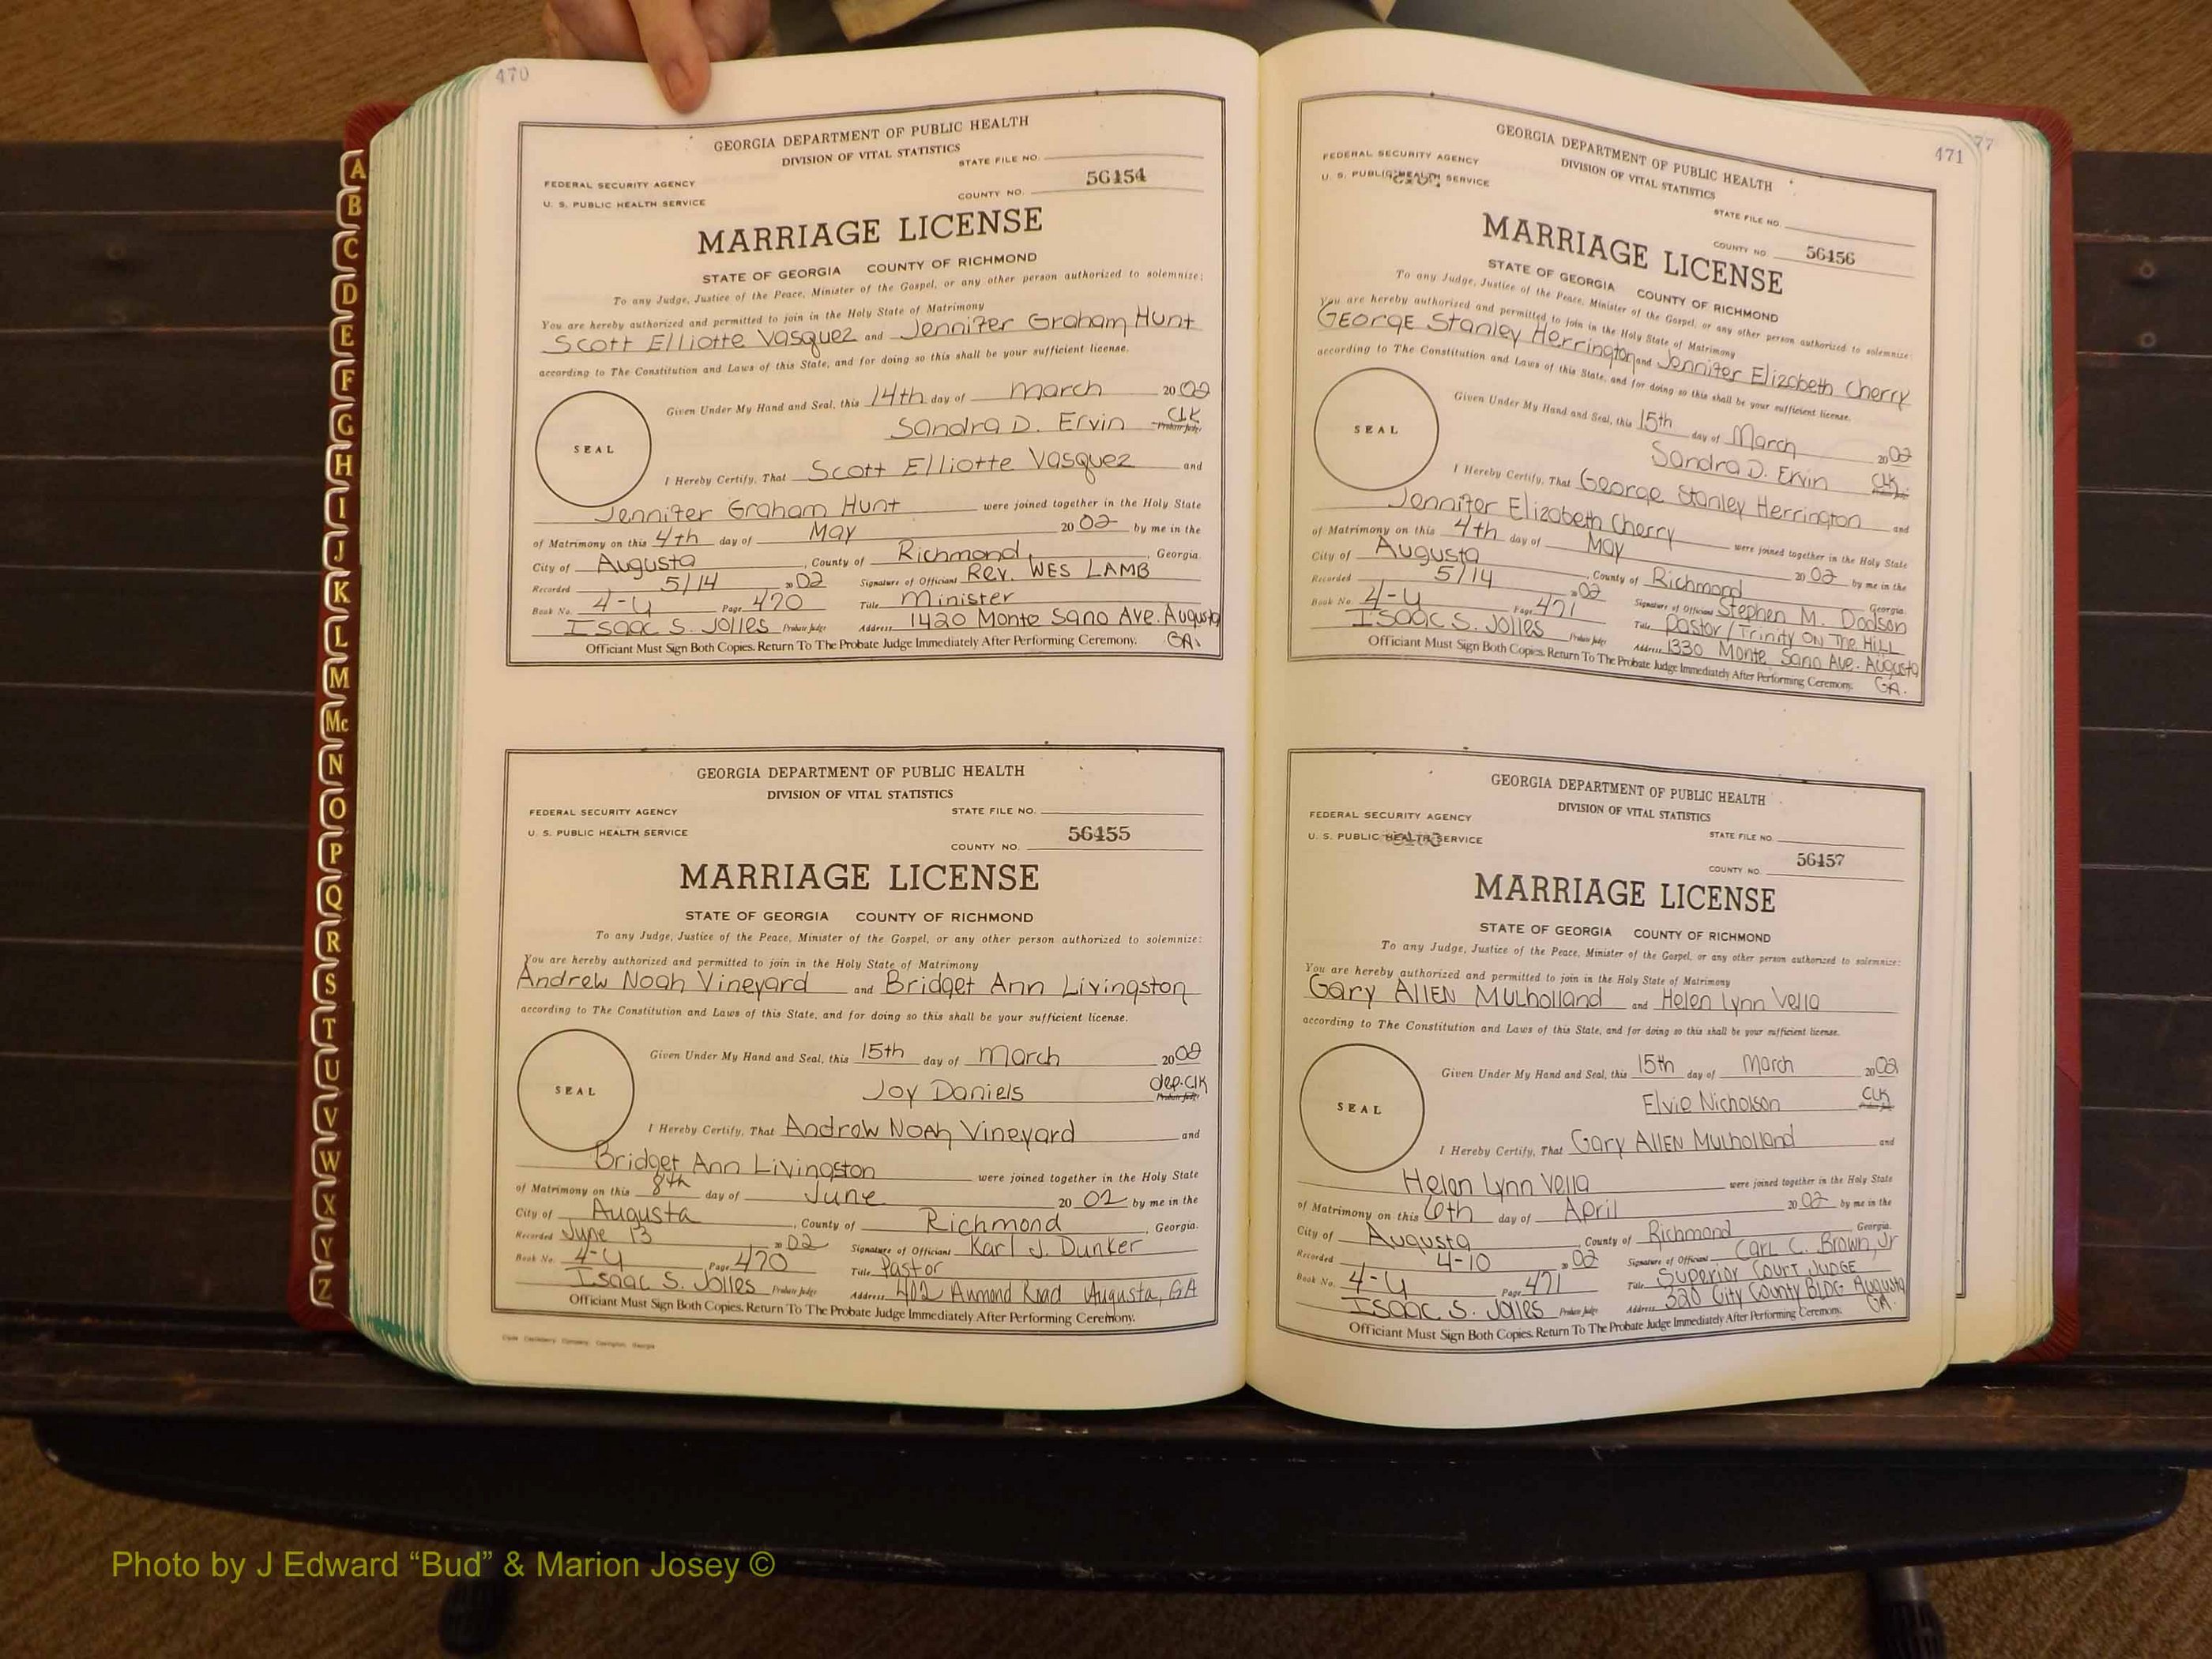 470
GEORGIA DEPARTMENT OF PUBLIC HEALTH
DIVISION OF VITAL STATISTICS
STATE FILE NO.
FEDERAL SECURITY AGENCY
U. S. PUBLIC HEALTH SERVICE
COUNTY NO. 56454
MARRIAGE LICENSE
STATE OF GEORGIA COUNTY OF RICHMOND
To any Judge, Justice of the Peace, Minister of the Gospel, or any other person authorized to solemnize:
You are hereby authorized and permitted to join in the Holy State of Matrimony
Scott Elliotte Vasquez and Jennifer Graham Hunt
according to The Constitution and Laws of this State, and for doing so this shall be your sufficient license.
Given Under My Hand and Seal, this 14th day of March 2002
Sandra D. Ervin CLK Probate Judge
SEAL
I Hereby Certify, That Scott Elliotte Vasquez and
Jennifer Graham Hunt were joined together in the Holy State
of Matrimony on this 4th day of May 20 02 by me in the
City of Augusta, County of Richmond, Georgia.
Recorded 5/14 2002 Signature of Officiant Rev. WES LAMB
Book No. 4-U Page 470 Title Minister
Isaac S. Jolles Probate Judge Address 1420 Monte Sano Ave. Augusta
GA.
Officiant Must Sign Both Copies. Return To The Probate Judge Immediately After Performing Ceremony.
GEORGIA DEPARTMENT OF PUBLIC HEALTH
DIVISION OF VITAL STATISTICS
FEDERAL SECURITY AGENCY STATE FILE NO.
U. S. PUBLIC HEALTH SERVICE
COUNTY NO. 56455
MARRIAGE LICENSE
STATE OF GEORGIA COUNTY OF RICHMOND
To any Judge, Justice of the Peace, Minister of the Gospel, or any other person authorized to solemnize:
You are hereby authorized and permitted to join in the Holy State of Matrimony
Andrew Noah Vineyard and Bridget Ann Livingston
according to The Constitution and Laws of this State, and for doing so this shall be your sufficient license.
Given Under My Hand and Seal, this 15th day of March 2002
Joy Daniels dep. Clk Probate Judge
SEAL
I Hereby Certify, That Andrew Noah Vineyard and
Bridget Ann Livingston were joined together in the Holy State
of Matrimony on this 8th day of June 20 02 by me in the
City of Augusta, County of Richmond, Georgia.
Recorded June 13 2002 Signature of Officiant Karl J. Dunker
Book No. 4-U Page 470 Title Pastor
Isaac S. Jolles Probate Judge Address 402 Aumond Road Augusta, GA
Officiant Must Sign Both Copies. Return To The Probate Judge Immediately After Performing Ceremony.
471
77
GEORGIA DEPARTMENT OF PUBLIC HEALTH
DIVISION OF VITAL STATISTICS
FEDERAL SECURITY AGENCY
U. S. PUBLIC HEALTH SERVICE
STATE FILE NO.
COUNTY NO. 56456
MARRIAGE LICENSE
STATE OF GEORGIA COUNTY OF RICHMOND
To any Judge, Justice of the Peace, Minister of the Gospel, or any other person authorized to solemnize:
You are hereby authorized and permitted to join in the Holy State of Matrimony
George Stanley Herrington and Jennifer Elizabeth Cherry
according to The Constitution and Laws of this State, and for doing so this shall be your sufficient license.
Given Under My Hand and Seal, this 15th day of March 2002
Sandra D. Ervin CLK. Probate Judge
SEAL
I Hereby Certify, That George Stanley Herrington and
Jennifer Elizabeth Cherry were joined together in the Holy State
of Matrimony on this 4th day of May 20 02 by me in the
City of Augusta, County of Richmond Georgia.
Recorded 5/14 2002 Signature of Officiant Stephen M. Dodson
Book No. 4-U Page 471 Title Pastor / Trinity ON The HILL
Isaac S. Jolles Probate Judge Address 1330 Monte Sano Ave. Augusta
GA.
Officiant Must Sign Both Copies. Return To The Probate Judge Immediately After Performing Ceremony.
GEORGIA DEPARTMENT OF PUBLIC HEALTH
DIVISION OF VITAL STATISTICS
FEDERAL SECURITY AGENCY
U. S. PUBLIC HEALTH SERVICE
STATE FILE NO.
COUNTY NO. 56457
MARRIAGE LICENSE
STATE OF GEORGIA COUNTY OF RICHMOND
To any Judge, Justice of the Peace, Minister of the Gospel, or any other person authorized to solemnize:
You are hereby authorized and permitted to join in the Holy State of Matrimony
Gary Allen Mulholland and Helen Lynn Vella
according to The Constitution and Laws of this State, and for doing so this shall be your sufficient license.
Given Under My Hand and Seal, this 15th day of March 2002
Elvie Nicholson CLK
SEAL
I Hereby Certify, That Gary Allen Mulholland and
Helen Lynn Vella were joined together in the Holy State
of Matrimony on this 6th day of April 20 02 by me in the
City of Augusta, County of Richmond Georgia.
Recorded 4-10 2002 Signature of Officiant Carl C. Brown, Jr
Book No. 4-U Page 471 Title Superior Court JUDGE
Isaac S. Jolles Probate Judge Address 320 City County BLDG Augusta
GA.
Officiant Must Sign Both Copies. Return To The Probate Judge Immediately After Performing Ceremony.
A
B
C
D
E
F
G
H
I
J
K
L
M
Mc
N
O
P
Q
R
S
T
U
V
W
X
Y
Z
Photo by J Edward “Bud” & Marion Josey ©